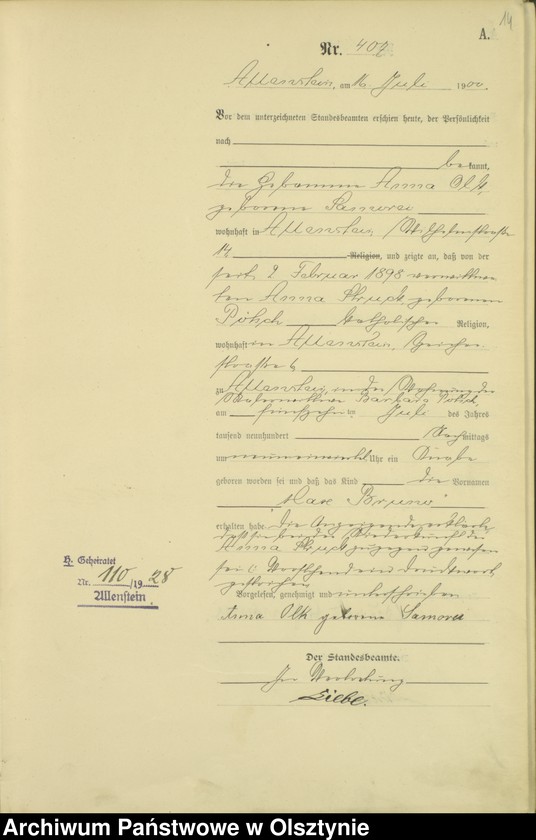 14
A.
Nr. 407
Allenstein, am 16 Juli 1900.
Vor dem unterzeichneten Standesbeamten erschien heute, der Persönlichkeit
nach
bekannt,
die Hebamme Anna Olk,
geborene Samorei
wohnhaft in Allenstein, Wilhelmstraße
14
Religion, und zeigte an, daß von der
seit 2 Februar 1898 verwittwe
ten Anna geborenen
Pötsch katholischer Religion,
wohnhaft in Allenstein,
straße 6
zu Allenstein, in der Wohnung der
Barbara Pötsch
am fünfzehnten Juli des Jahres
tausend neunhundert Nachmittags
um Uhr ein Knabe
geboren worden sei und daß das Kind die Vornamen
Max Bruno
erhalten habe. Die Anzeigende erklärte,
daß sie bei der Niederkunft der
Anna zugegen gewesen
sei. Vorstehend ein Druckwort
gestrichen
Vorgelesen, genehmigt und unterschrieben
Anna Olk geborene Samorei
Der Standesbeamte.
In Vertretung
Liebe.
H. Geheiratet
Nr. 110/1928
Allenstein.
Archiwum Państwowe w Olsztynie